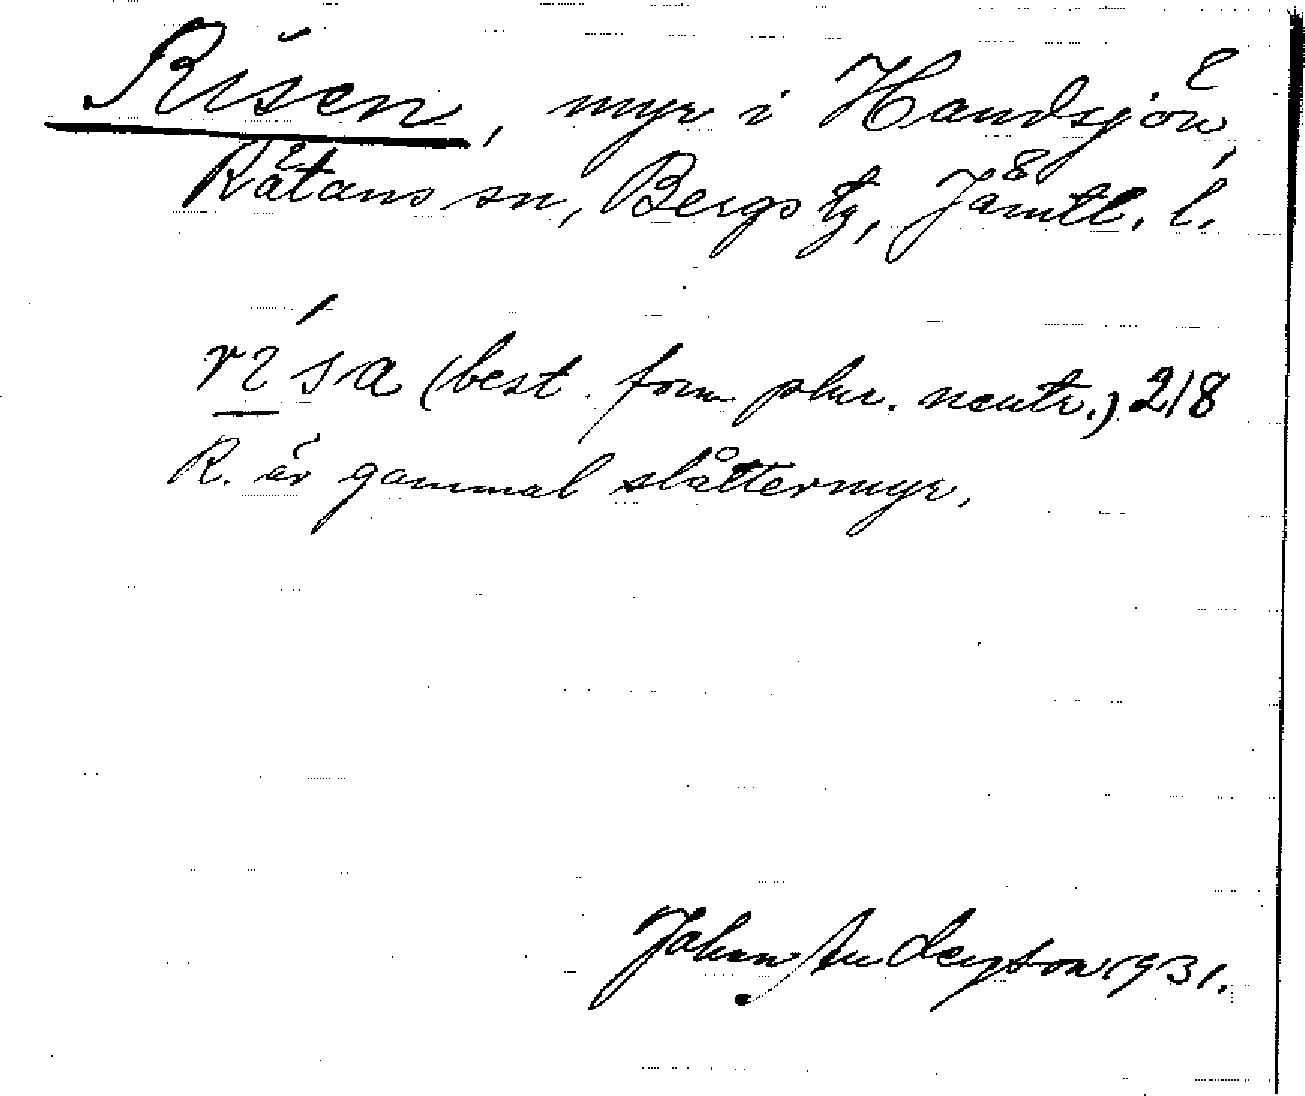 Risen, myr i Handsjön,
Rätans sn, Bergs tg, Jämtl. l.
rísa (best. form plur. neutr.) 2/8
R. är gammal slåttermyr.
Johan Anderson 1931.